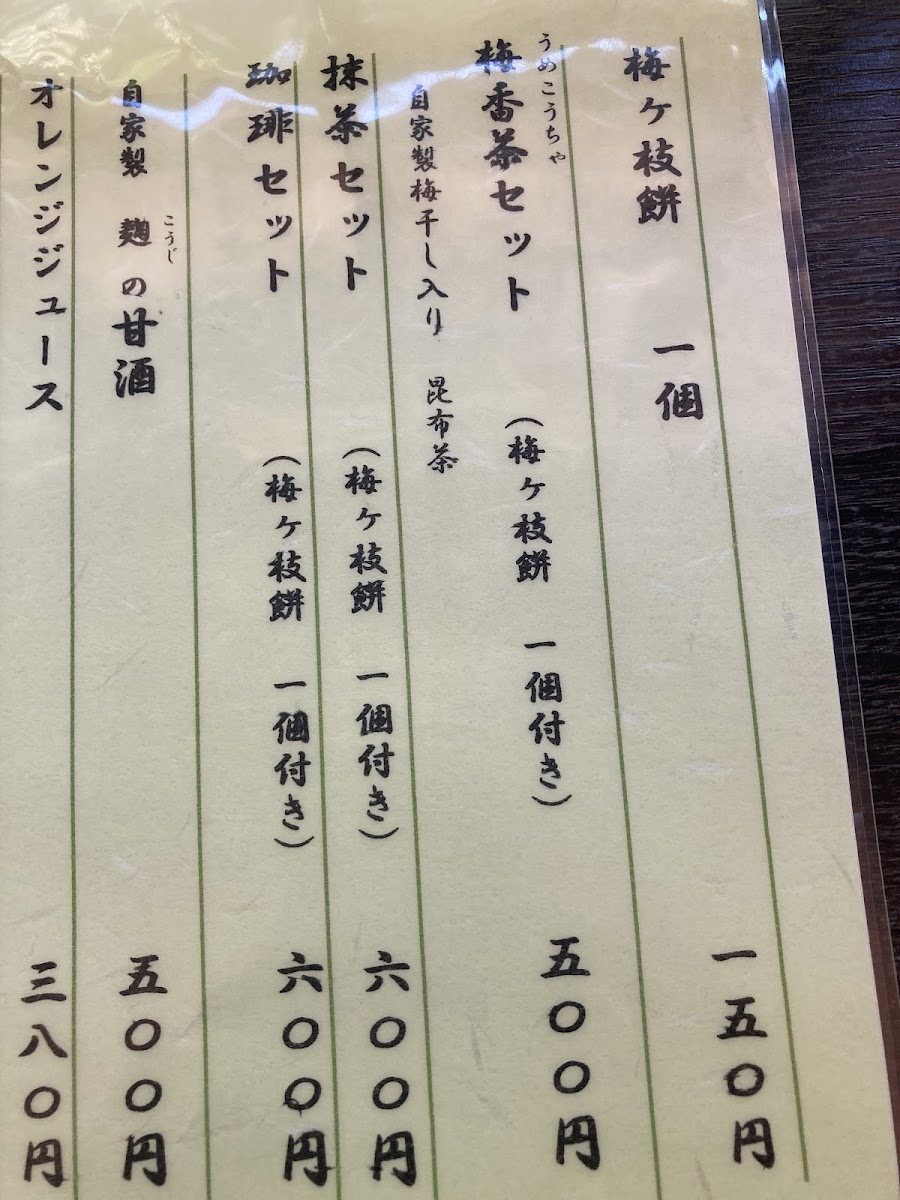 梅ケ枝餅 一個 一五〇円
うめこうちゃ
梅香茶セット (梅ケ枝餅 一個付き) 五〇〇円
自家製梅干し入り 昆布茶
抹茶セット (梅ケ枝餅 一個付き) 六〇〇円
珈琲セット (梅ケ枝餅 一個付き) 六〇〇円
こうじ
自家製 麹の甘酒 五〇〇円
オレンジジュース 三八〇円